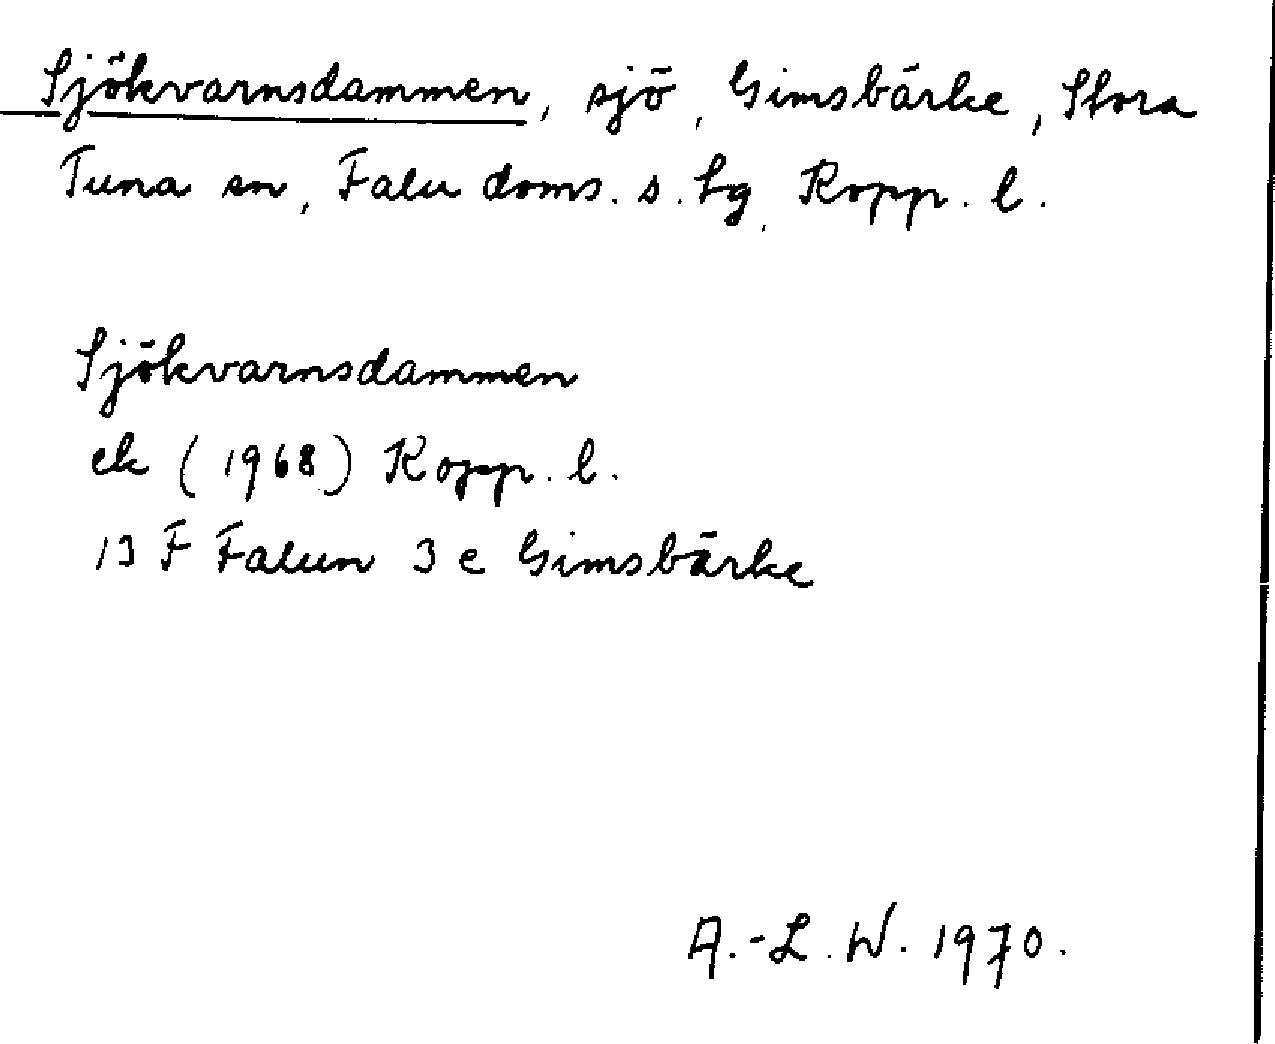 Sjökvarnsdammen, sjö, Gimsbärke, Stora
Tuna sn, Falu doms. s. tg, Kopp. l.
Sjökvarnsdammen
ek (1968) Kopp. l.
13 F Falun 3 e Gimsbärke
A.-L. W. 1970.